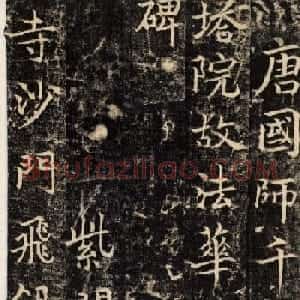 唐國師千
塔院故法華
碑
紫
寺沙門飛錫
Shufaziliao.com